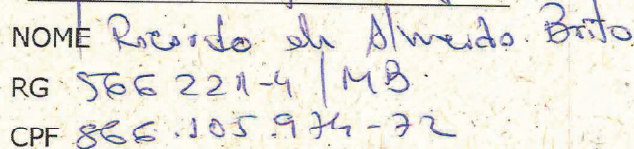 NOME Ricardo de Almeida Brito
RG 566 221-4 / MB
CPF 866.105.974-72